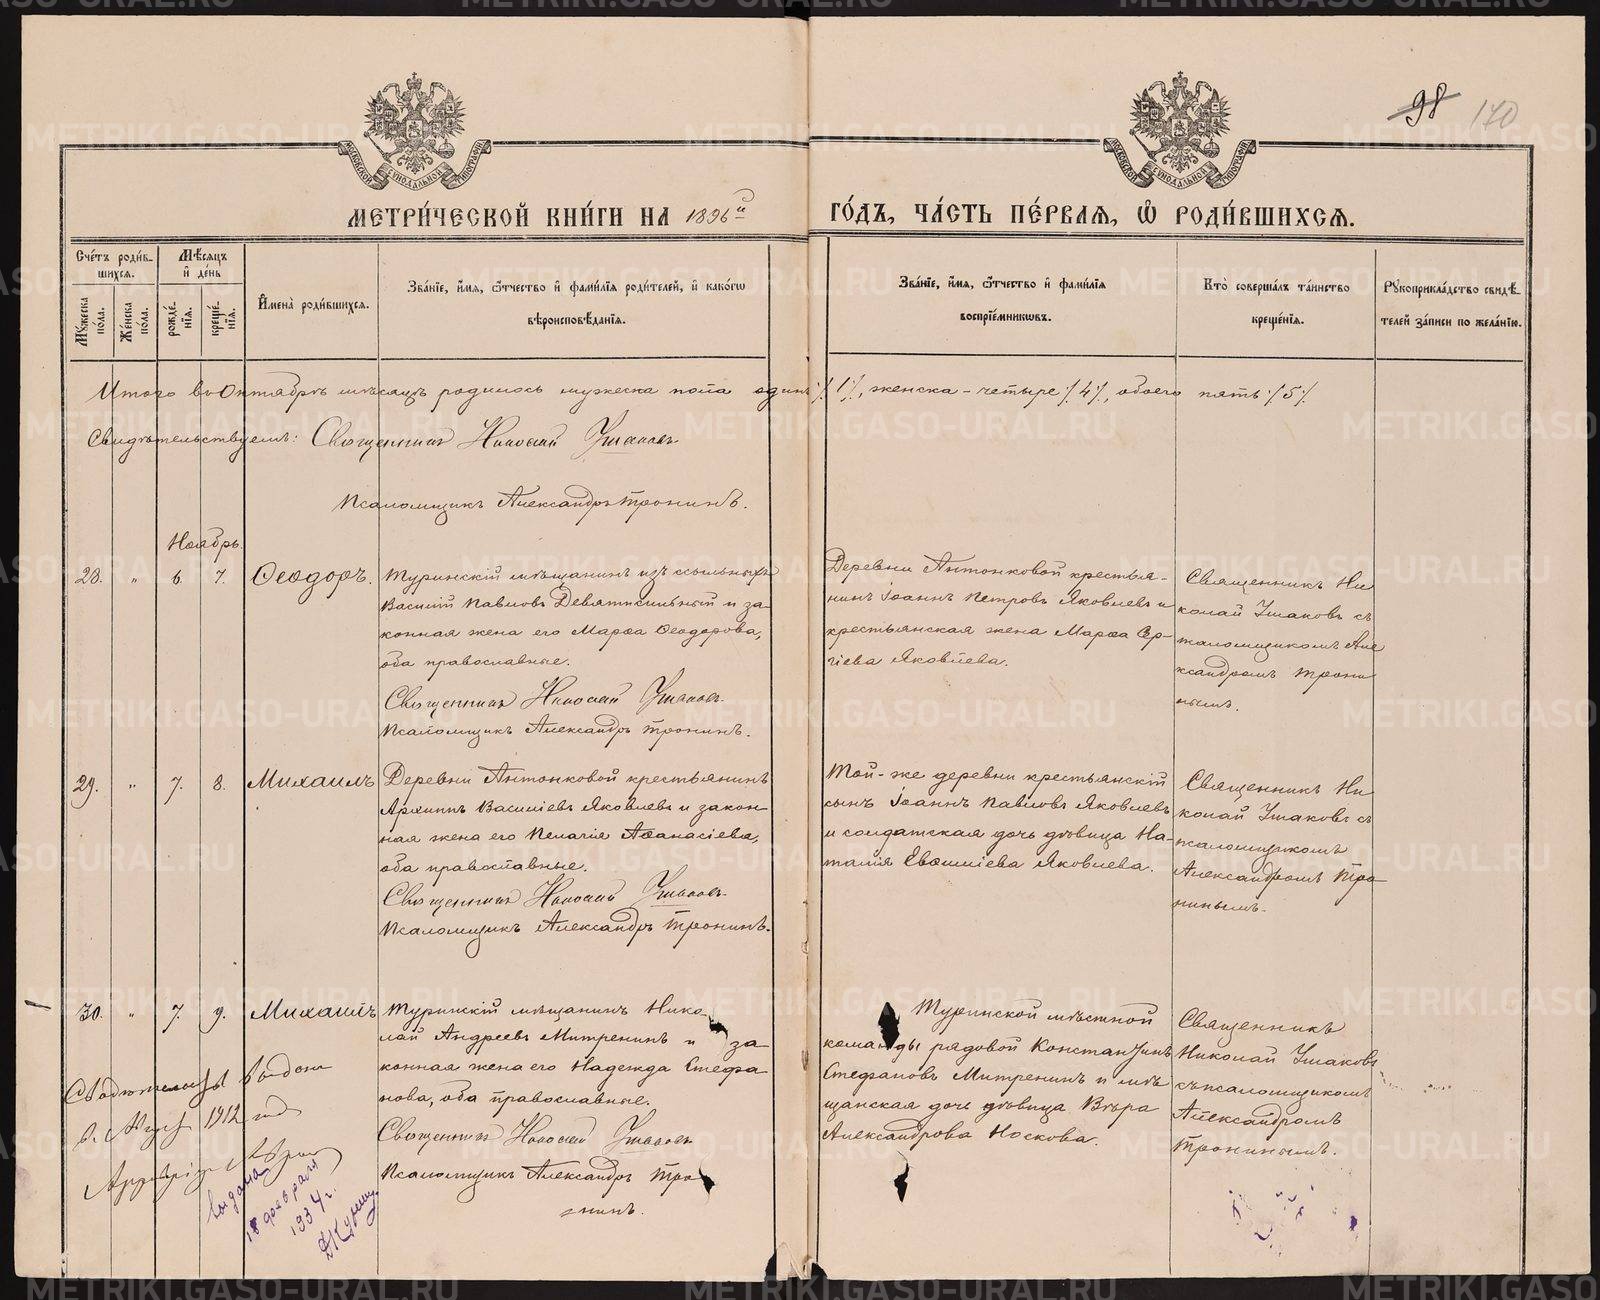 98 170
МОСКОВСКОЙ СѴНОДАЛЬНОЙ ТИПОГРАФІИ
МОСКОВСКОЙ СѴНОДАЛЬНОЙ ТИПОГРАФІИ
МЕТРИ́ЧЕСКОЙ КНИ́ГИ НА 1896й
ГО́ДЪ, ЧА́СТЬ ПЕ́РВАЯ, Ѡ РОДИ́ВШИХСЯ.
Сче́тъ роди́в-
шихся.
Мꙋжеска
по́ла.
Же́нска
по́ла.
Мѣ́сяцъ
и де́нь
рожде́-
нїя.
креще́-
нїя.
Имена̀ роди́вшихся.
Зва́нїе, и́мя, ѻ́тчество и фами́лїя роди́телей, и како́гѡ
вѣроисповѣ́данїя.
Зва́нїе, и́мя, ѻ́тчество и фами́лїя
воспрїе́мникѡвъ.
Кто̀ соверша́лъ та́инство
креще́нїя.
Рꙋкоприкла́дство свидѣ́-
телей за́писи по жела́нїю.
Итого въ Октябрѣ мѣсяцѣ родилось мужеска пола одинъ /1/, женска - четыре /4/, обоего пять /5/.
Свидѣтельствуемъ: Священникъ Николай Ушаковъ
Псаломщикъ Александръ Тронинъ.
Ноябрь.
28. " 6. 7. Ѳеодоръ.
Туринскій мѣщанинъ изъ ссыльныхъ
Василій Павловъ Девятисильный и за-
конная жена его Марѳа Ѳеодорова,
оба православные.
Священникъ Николай Ушаковъ
Псаломщикъ Александръ Тронинъ.
Деревни Антонковой крестья-
нинъ Іоаннъ Петровъ Яковлевъ и
крестьянская жена Марѳа Сер-
гіева Яковлева.
Священникъ Ни
колай Ушаковъ съ
псаломщикомъ Але
ксандромъ Трони
нымъ.
29. " 7. 8. Михаилъ
Деревни Антонковой крестьянинъ
Архиппъ Василіевъ Яковлевъ и закон-
ная жена его Пелагія Аѳанасіева,
оба православные.
Священникъ Николай Ушаковъ
Псаломщикъ Александръ Тронинъ.
Той-же деревни крестьянскій
сынъ Іоаннъ Павловъ Яковлевъ
и солдатская дочь дѣвица На-
талія Евѳиміева Яковлева.
Священникъ Ни
колай Ушаковъ съ
псаломщикомъ
Александромъ Тро-
нинымъ.
30. " 7. 9. Михаилъ
Туринскій мѣщанинъ Нико-
лай Андреевъ Митренинъ и за-
конная жена его Надежда Стефа
нова, оба православные.
Священникъ Николай Ушаковъ
Псаломщикъ Александръ Тро-
нинъ.
Туринской мѣстной
команды рядовой Константинъ
Стефановъ Митренинъ и мѣ
щанская дочь дѣвица Вѣра
Александрова Носкова.
Священникъ
Николай Ушаковъ
съ псаломщикомъ
Александромъ
Тронинымъ.
выдано
1912 год
выдана
18 февраля
1934 г.
METRIKI.GASO-URAL.RU